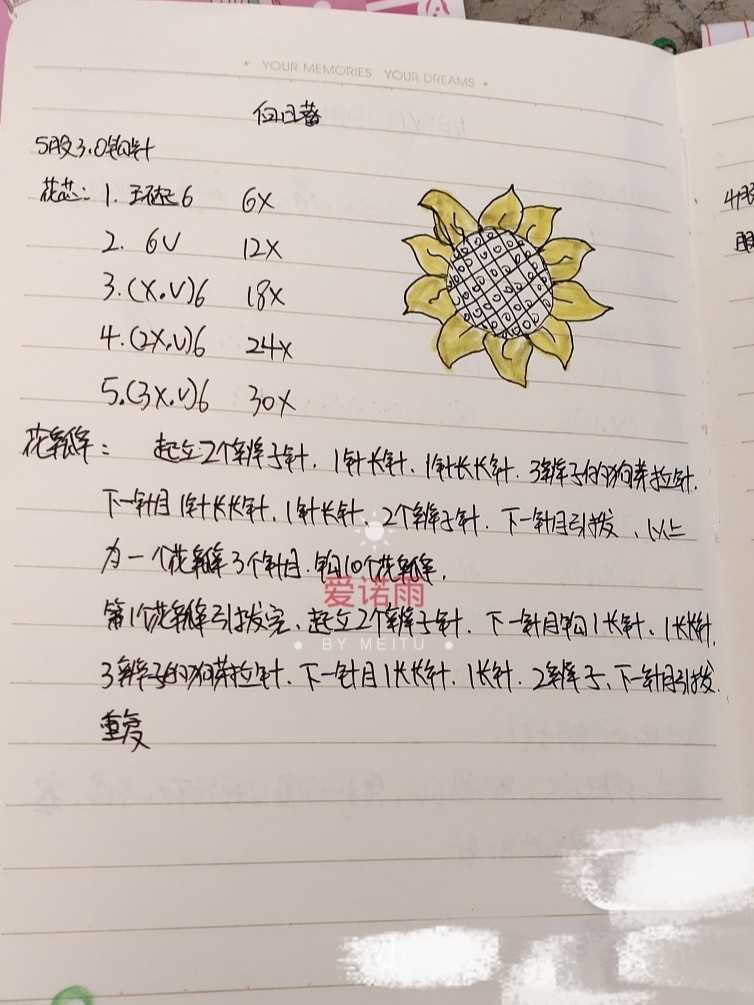 YOUR MEMORIES YOUR DREAMS
向日葵
5股3.0钩针
花芯: 1. 环起6 6X
2. 6V 12X
3.(X.V)6 18X
4.(2X.V)6 24X
5.(3X.V)6 30X
花瓣: 起立2个辫子针. 1针长针. 1针长长针. 3辫子的狗芽拉针.
下一针目1针长长针. 1针长针. 2个辫子针. 下一针目引拨、以上
为一个花瓣3个针目. 钩10个花瓣.
第1个花瓣引拨完、起立2个辫子针. 下一针目钩1长针、1长长针.
3辫子的狗芽拉针. 下一针目1长长针. 1长针. 2辫子、下一针目引拨.
重复
爱诺雨
BY MEITU